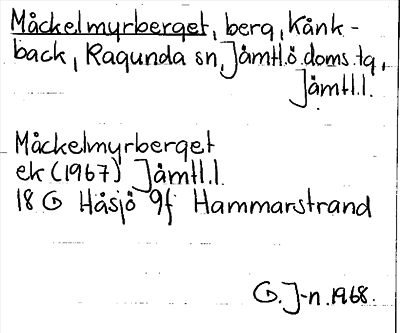 Måckelmyrberget, berg, Kånk-
back, Ragunda sn, Jämtl.ö.doms.tg,
Jämtl.l.
Måckelmyrberget
ek (1967) Jämtl.l.
18 G Håsjö 9f Hammarstrand
G. J-n. 1968.